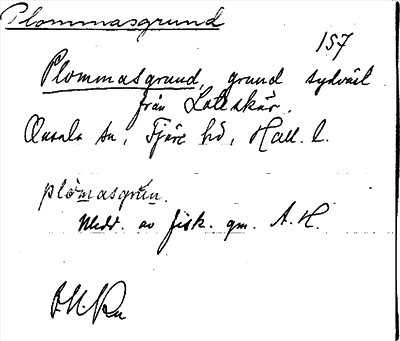 Plommasgrund
157
Plommasgrund, grund sydväst
från Lotsskär.
Onsala sn, Fjäre hd, Hall. l.
plòmasgrùn.
Medd. av fisk. gm. A. H.